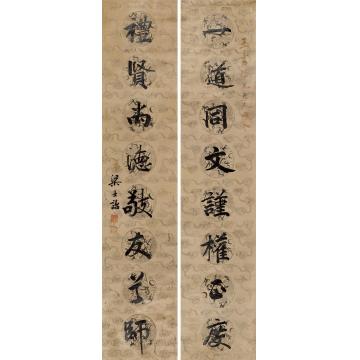 一道同文謹權正度
禮賢尚德敬友尊師
梁士詒